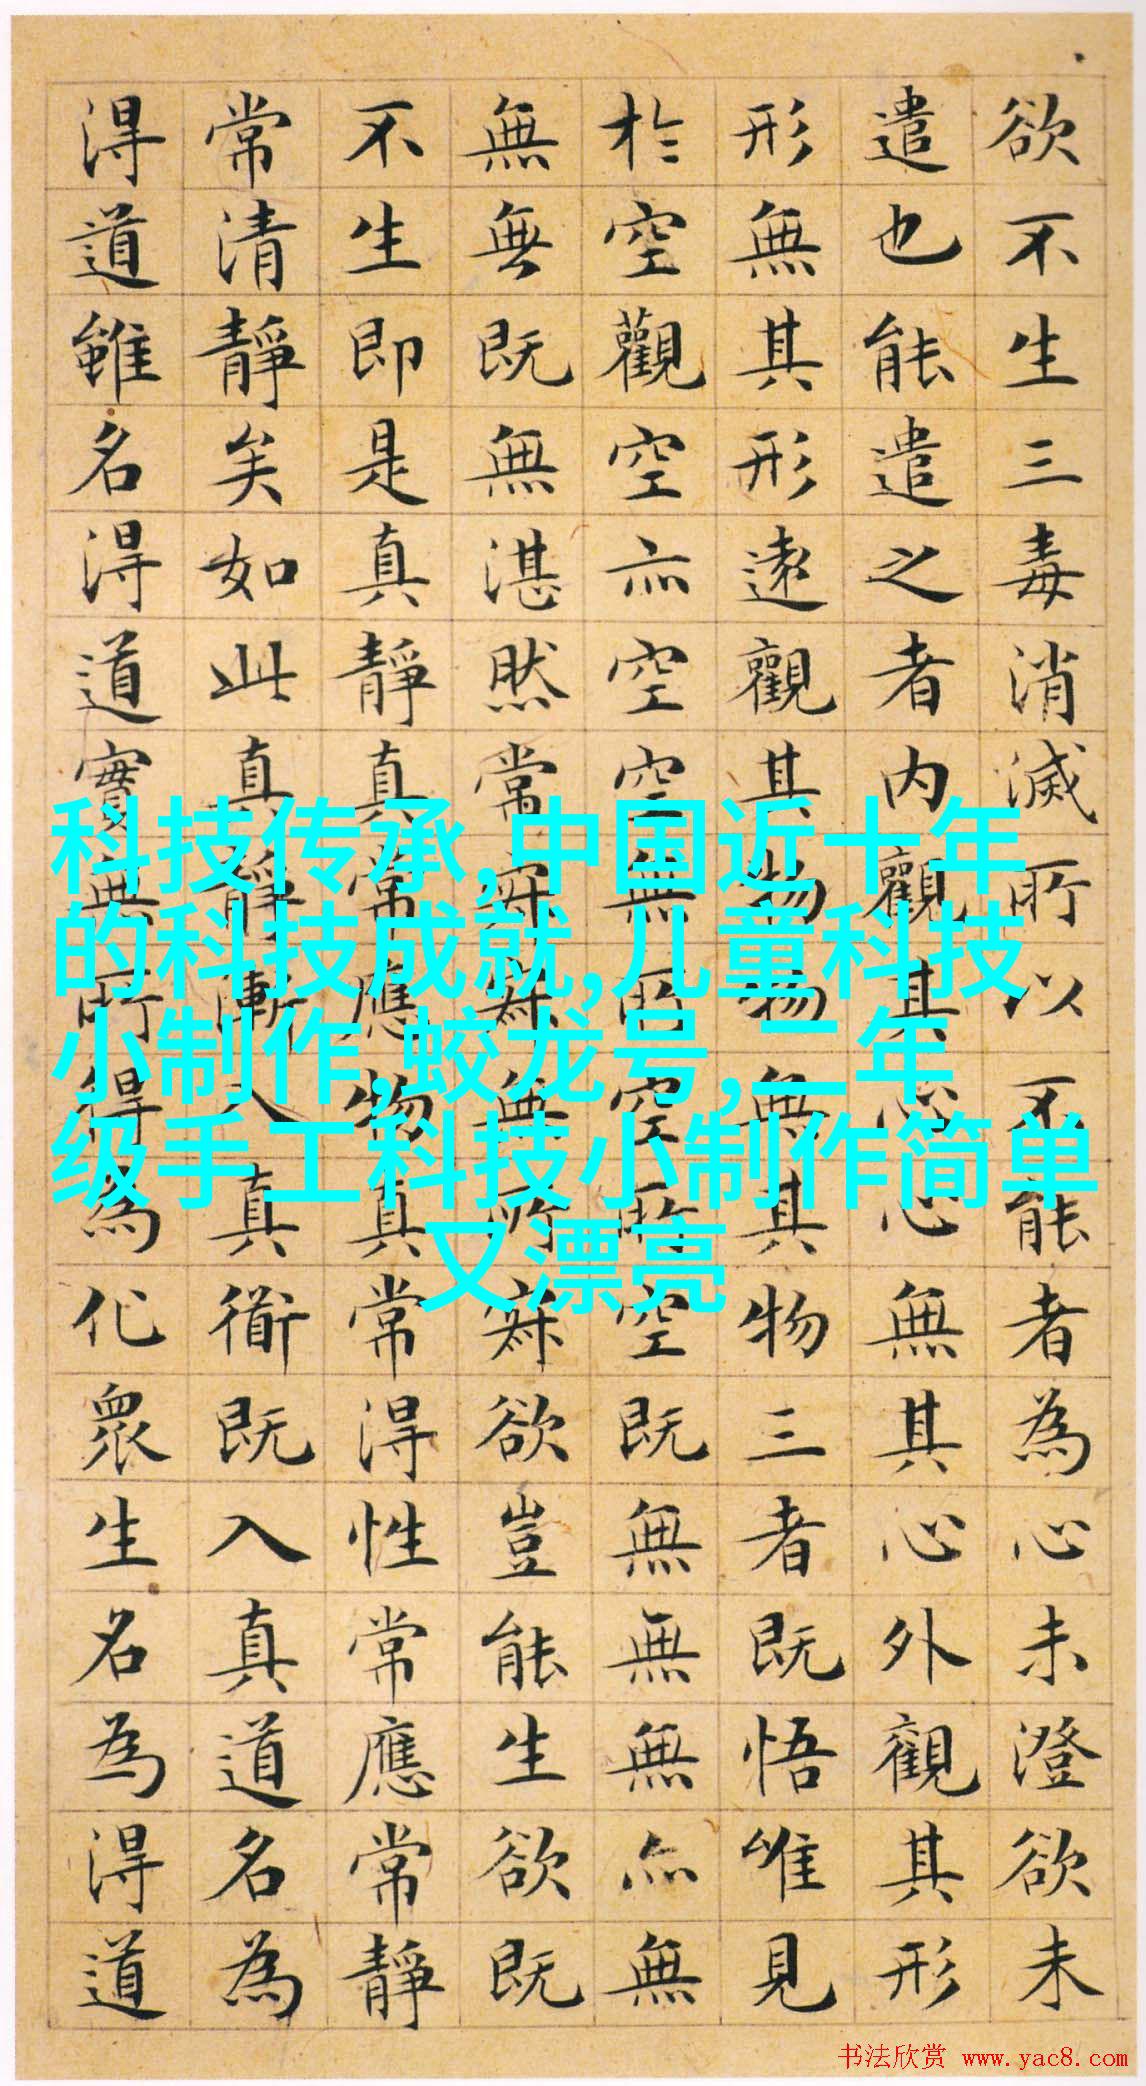 欲不生三毒消滅所以不能者為心未澄欲未
遣也能遣之者内觀其心心無其心外觀其形
形無其形遠觀其物物無其物三者既悟唯見
於空觀空亦空空無所空所空既無無無亦無
無無既無湛然常寂寂無所寂欲豈能生欲既
不生即是真靜真常應物真常得性常應常靜
常清靜矣如此真靜漸入真衜既入真道名為
得道雖名得道實無所得為化眾生名為得道
科技传承,中国近十年
的科技成就,儿童科技
小制作,蛟龙号,二年
级手工科技小制作简单
又漂亮
书法欣赏 www.yac8.com